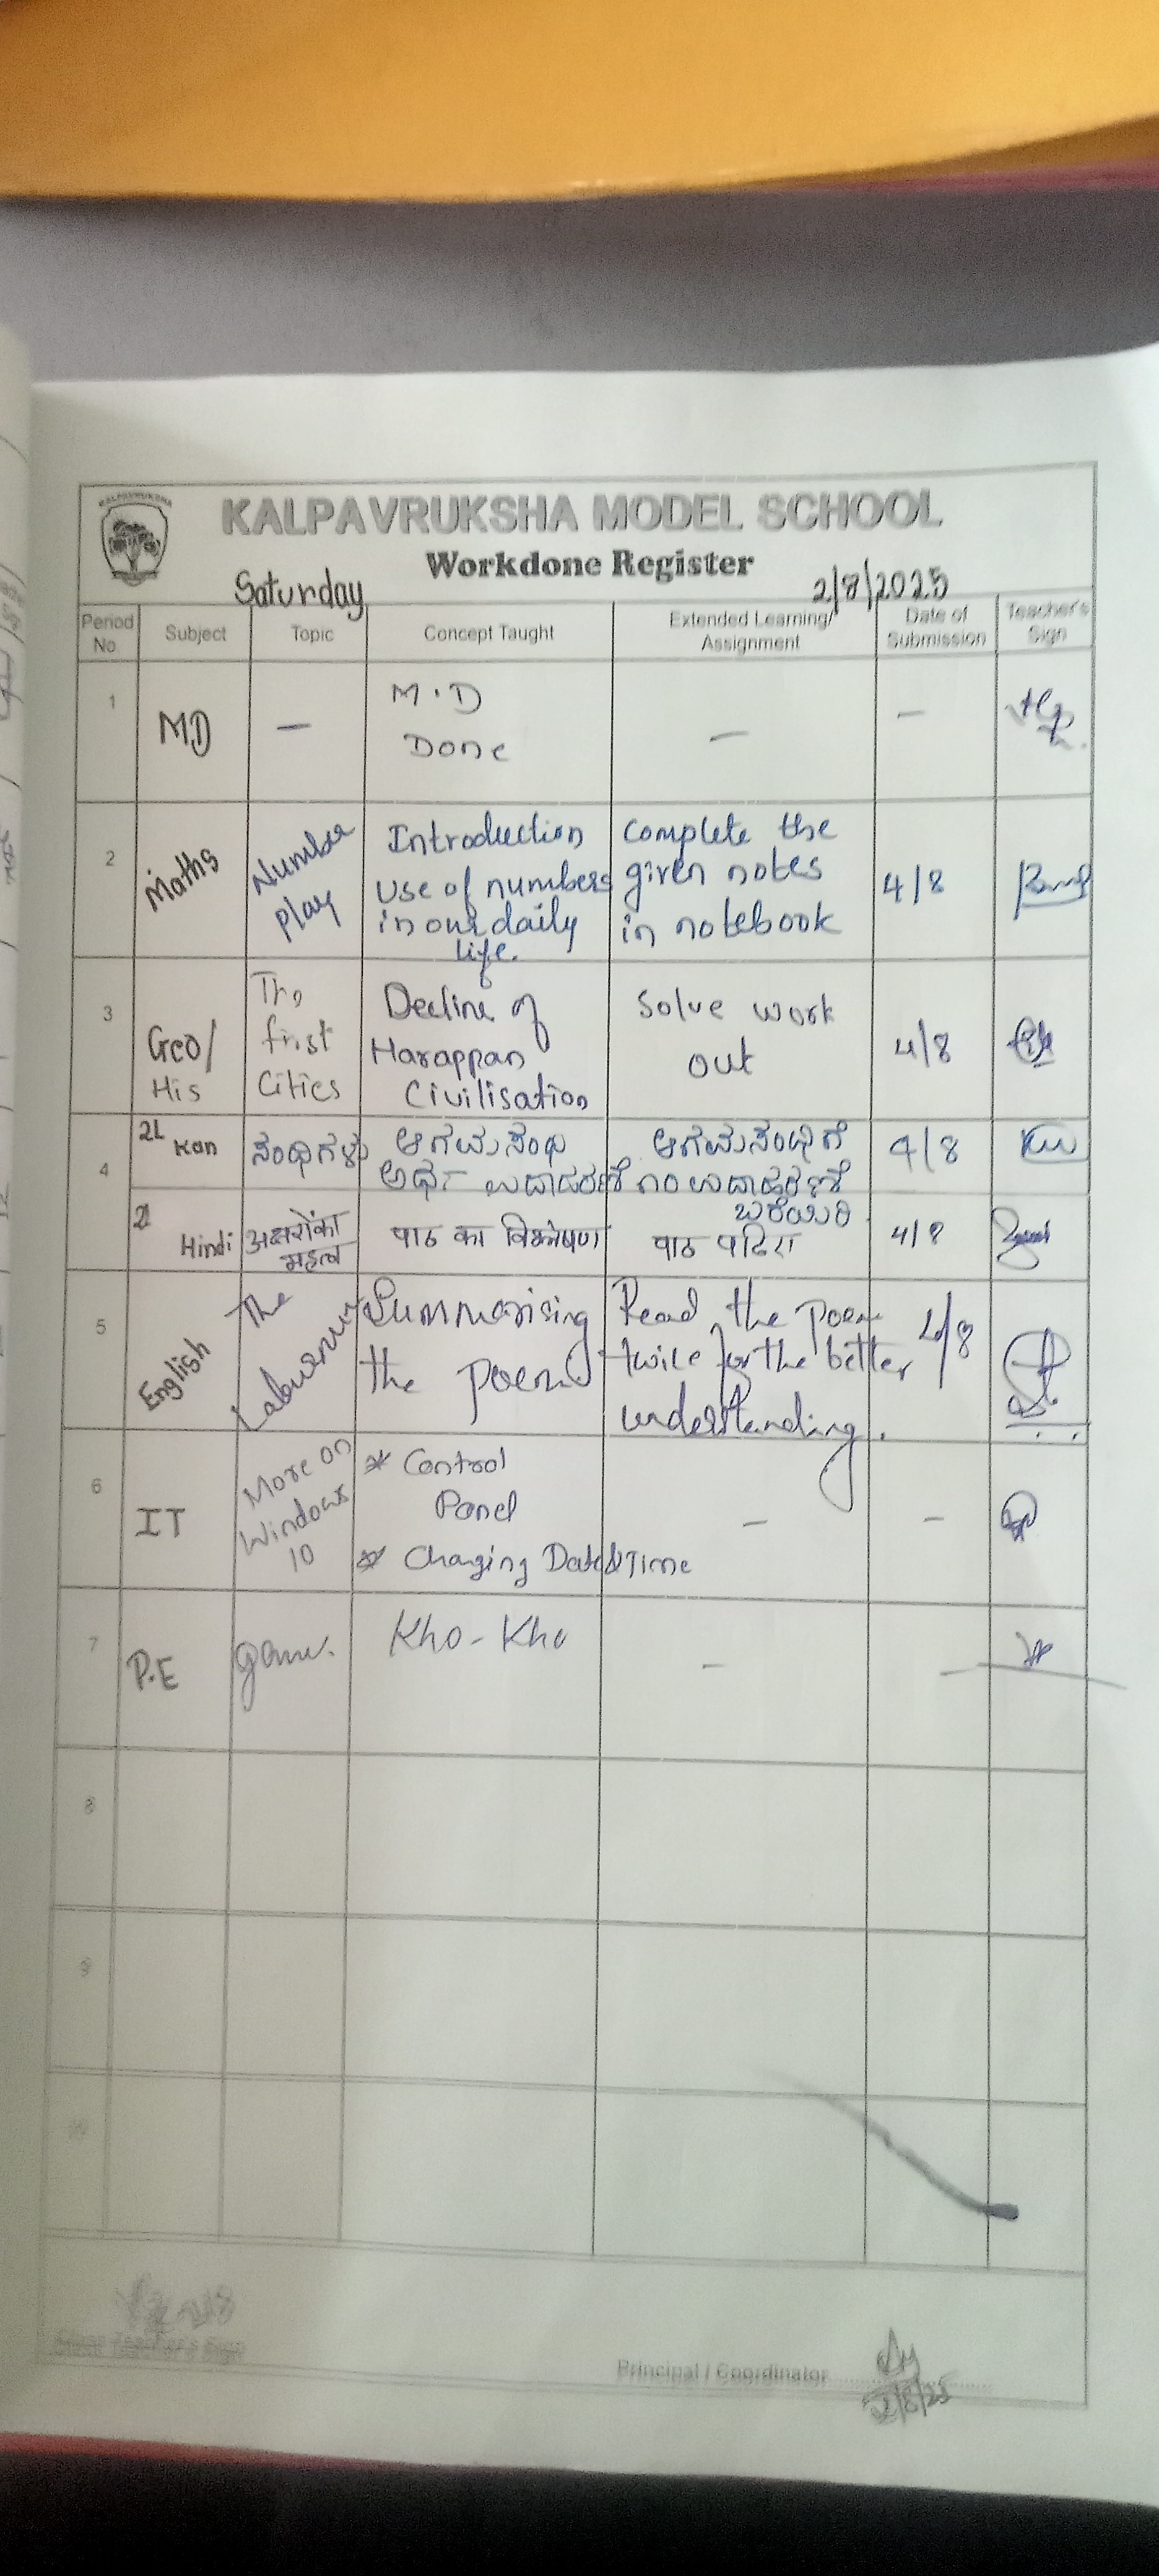 KALPAVRUKSHA
KALPAVRUKSHA MODEL SCHOOL
Workdone Register
Saturday 2/8/2025
Period No Subject Topic Concept Taught Extended Learning/ Assignment Date of Submission Teacher's Sign
1 MD — M.D Done — —
2 Maths Number play Introduction use of numbers in our daily life. Complete the given notes in notebook 4/8
3 Geo/ His The frist Cities Decline of Harappan Civilisation Solve work out 4/8
4 2L Kan ಸಂಧಿಗಳು ಆಗಮಸಂಧಿ ಅರ್ಥ - ಉದಾಹರಣೆ ಆಗಮಸಂಧಿಗೆ ೧೦ ಉದಾಹರಣೆ ಬರೆಯಿರಿ 4/8
2l Hindi अक्षरोंका महत्व पाठ का विश्लेषण पाठ पढिए 4/8
5 English The Laburnum Summarising the poem Read the poem twice for the better understanding. 4/8
6 IT More on Windows 10 * Control Panel * Changing Date & Time — —
7 P.E game. Kho-Kho — —
8
9
Class Teacher's Sign
Principal / Coordinator
2/8/25